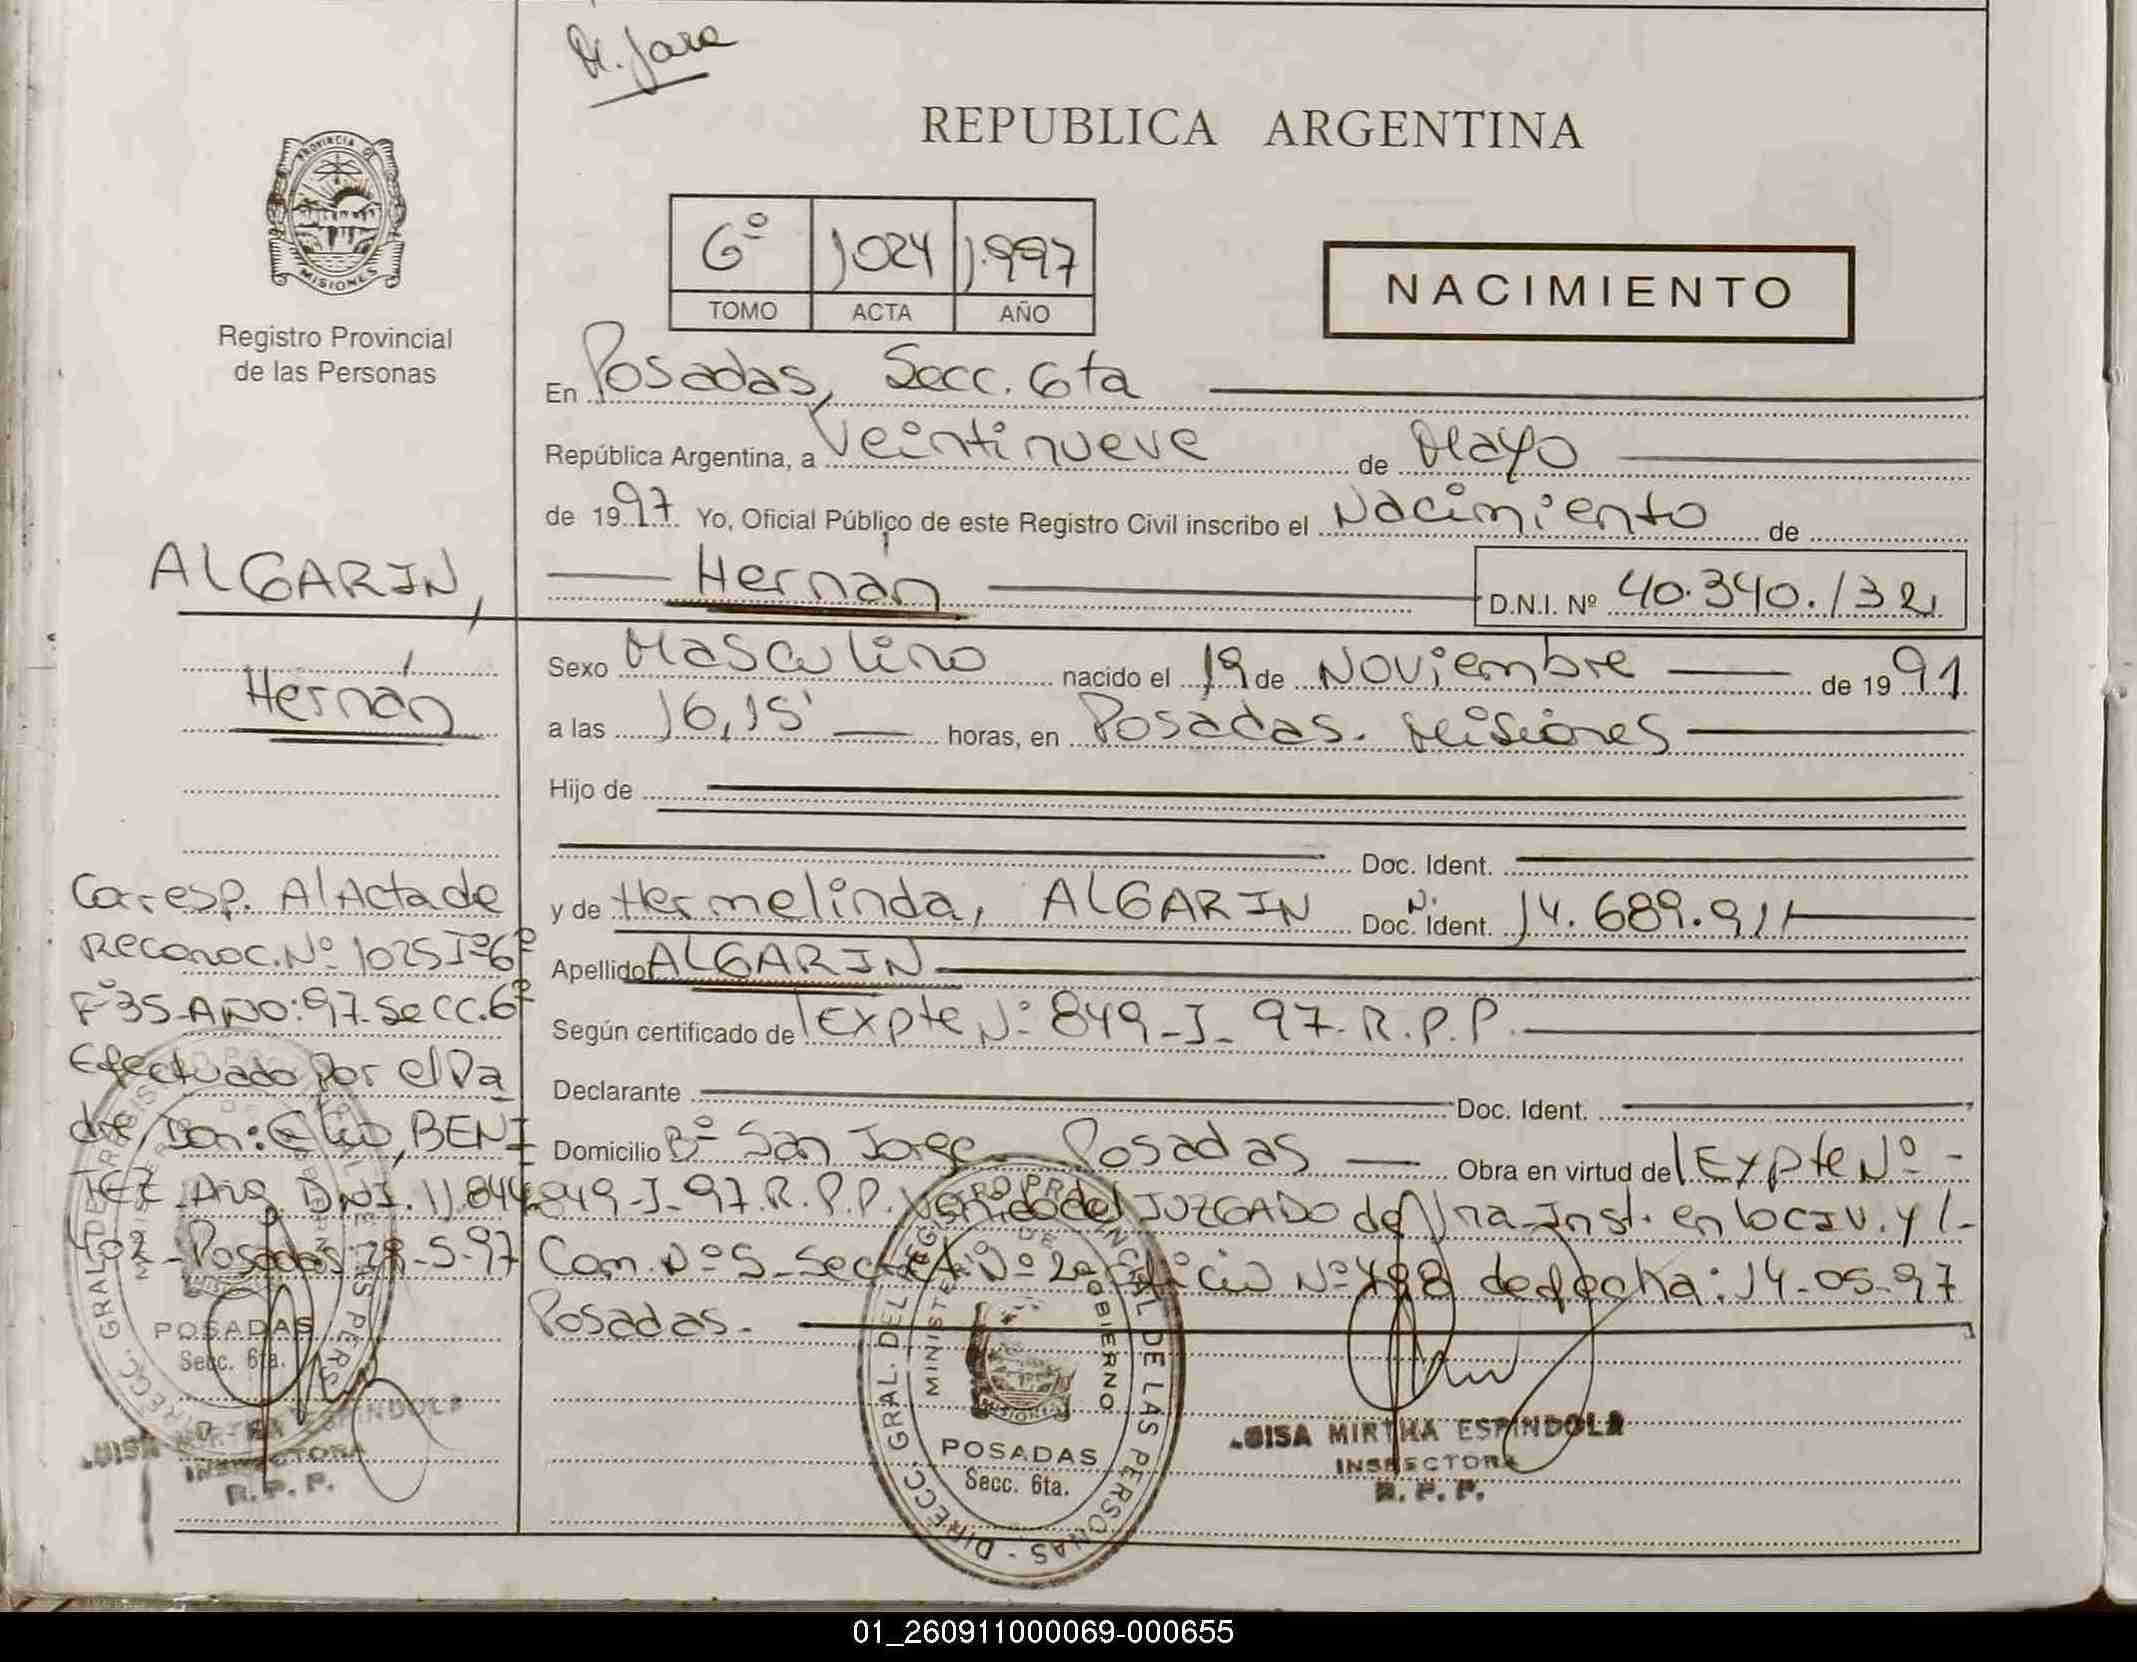 M. Jara
REPUBLICA ARGENTINA
PROVINCIA DE
MISIONES
Registro Provincial
de las Personas
6º 1024 1.997
TOMO ACTA AÑO
NACIMIENTO
En Posadas, Secc. 6ta
República Argentina, a Veintinueve de Mayo
de 1997 Yo, Oficial Público de este Registro Civil inscribo el Nacimiento de
Hernán
D.N.I. Nº 40.340.132
ALGARIN,
Hernán
Sexo Masculino nacido el 19 de Noviembre de 1991
a las 16,15' horas, en Posadas. Misiones
Hijo de
Doc. Ident.
y de Hermelinda, ALGARIN Doc. N. Ident. 14.689.911
Apellido ALGARIN
Según certificado de Expte Nº 849-I-97-R.P.P.
Declarante Doc. Ident.
Domicilio Bº San Jorge Posadas Obra en virtud del Expte Nº -
849-I-97.R.P.P. Venido del JUZGADO de 1ra Inst. en lo CIV. y
Com. Nº 5-Secret. Nº 2 Oficio Nº 498 de fecha: 14-05-97
Posadas.
Corresp. Al Acta de
Reconoc. Nº 1025 Tº 6º
Fº 35-AÑO: 97-Secc. 6º
Efectuado Por el Pa
dre, Don: Elio, BENI
TEZ Arg. DNI. 11.844
402 - Posadas 29-5-97
DIRECC. GRAL. DEL REGISTRO PROVINCIAL DE LAS PERSONAS
MINISTERIO DE GOBIERNO
MISIONES
POSADAS
Secc. 6ta.
LUISA MIRTHA ESPINDOLA
INSPECTORA
R.P.P.
POSADAS
Secc. 6ta.
LUISA MIRTHA ESPINDOLA
INSPECTORA
R.P.P.
01_260911000069-000655